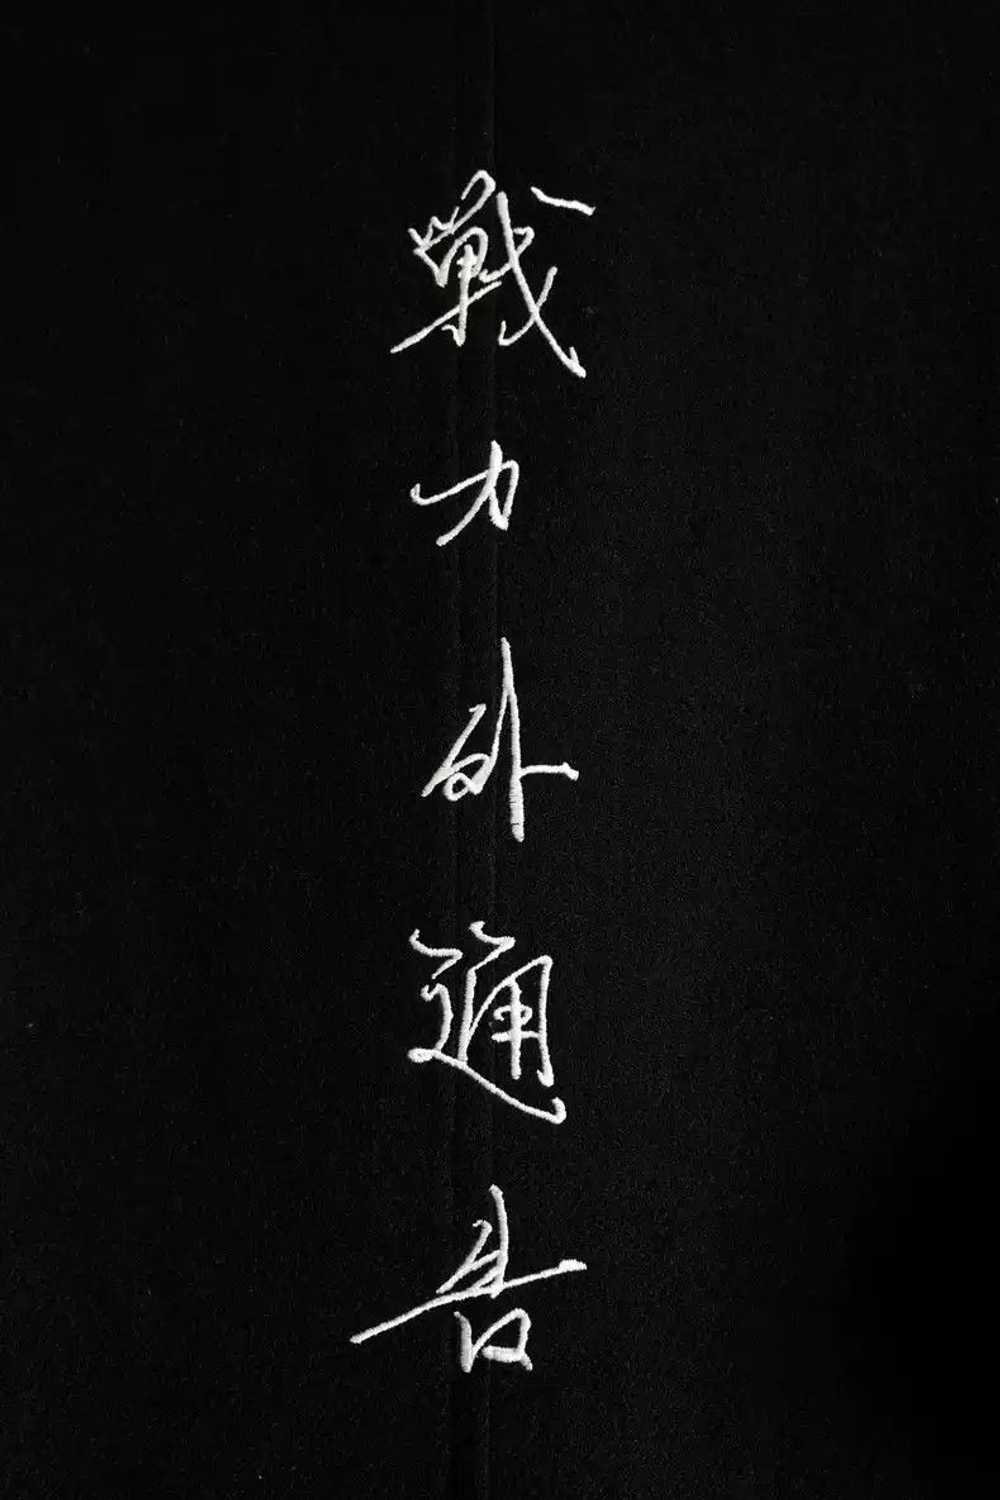 戰力外通告